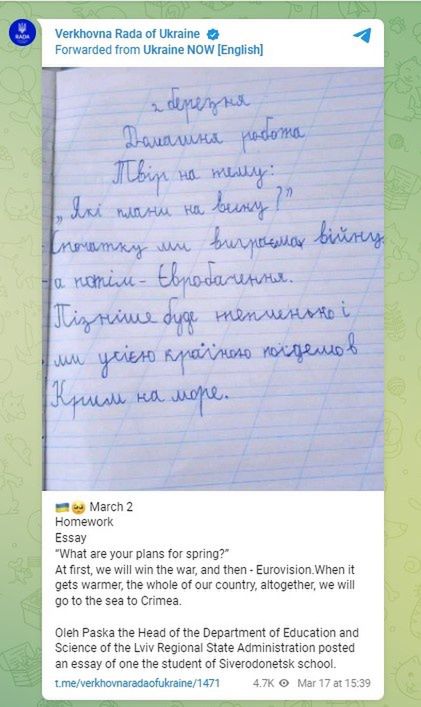 Verkhovna Rada of Ukraine
Forwarded from Ukraine NOW [English]
RADA
2 березня
Домашня робота
Твір на тему:
„Які плани на весну?"
Спочатку ми виграємо війну
а потім - Євробачення.
Пізніше буде тепленько і
ми усією країною поїдемо в
Крим на море.
🇺🇦🥹 March 2
Homework
Essay
"What are your plans for spring?"
At first, we will win the war, and then - Eurovision.When it
gets warmer, the whole of our country, altogether, we will
go to the sea to Crimea.
Oleh Paska the Head of the Department of Education and
Science of the Lviv Regional State Administration posted
an essay of one the student of Siverodonetsk school.
t.me/verkhovnaradaofukraine/1471 4.7K Mar 17 at 15:39